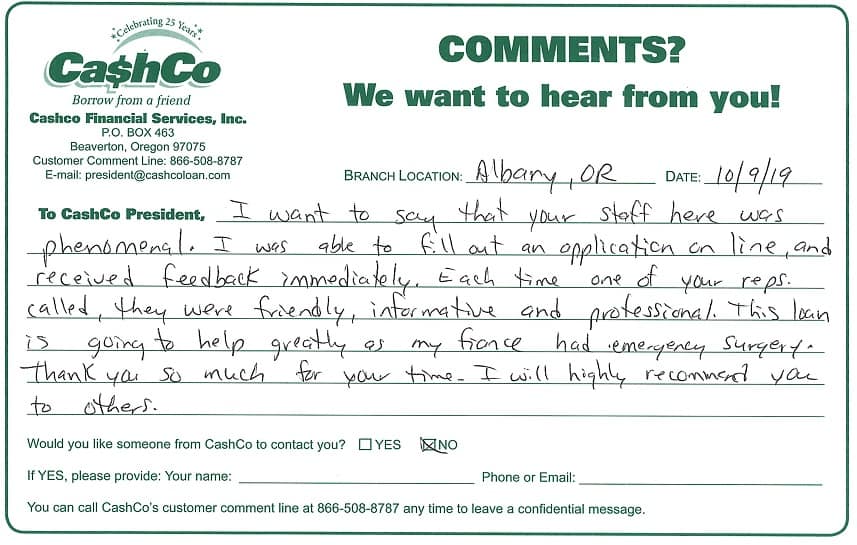 Celebrating 25 Years
Ca$hCo
Borrow from a friend
Cashco Financial Services, Inc.
P.O. BOX 463
Beaverton, Oregon 97075
Customer Comment Line: 866-508-8787
E-mail: president@cashcoloan.com
COMMENTS?
We want to hear from you!
BRANCH LOCATION: Albany, OR DATE: 10/9/19
To CashCo President, I want to say that your staff here was
phenomenal. I was able to fill out an application on line, and
received feedback immediately. Each time one of your reps.
called, they were friendly, informative and professional. This loan
is going to help greatly as my fiance had emergency surgery.
Thank you so much for your time. I will highly recommend you
to others.
Would you like someone from CashCo to contact you? YES NO
If YES, please provide: Your name: Phone or Email:
You can call CashCo's customer comment line at 866-508-8787 any time to leave a confidential message.